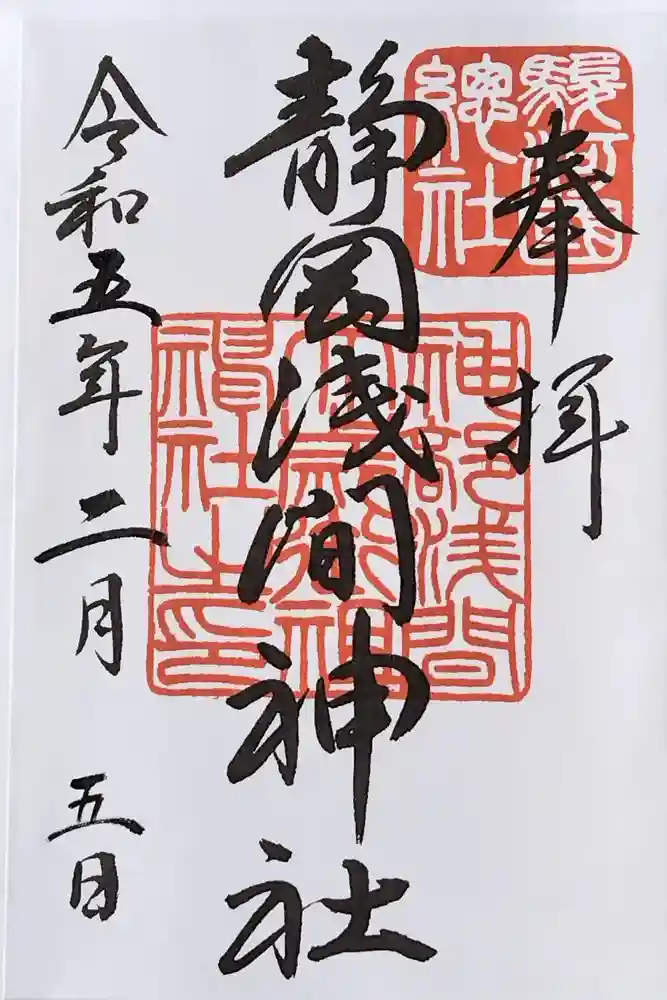 奉拝
駿河國
總社
静岡浅間神社
神部浅間
社之印
令和五年二月五日